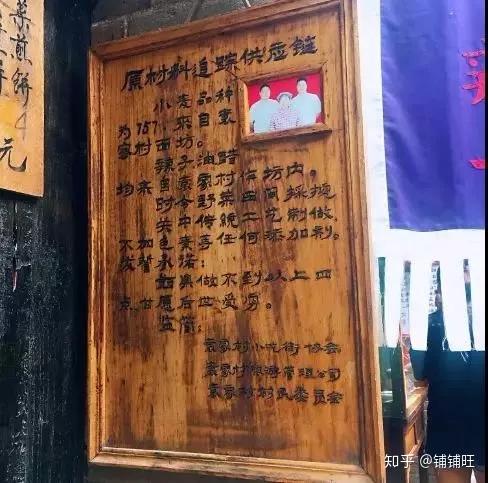 菜煎餅4
元
原材料追踪供应链
小麦品种
为757,面来自袁
家村面坊。
辣子油醋
均来自袁家村作坊内。
时令野菜田间採摘
关中传统工艺制做,
不加色素任何添加剂。
发誓承诺:
如果做不到以上四
点甘愿后世受
监
袁家村小吃街协会
袁家村旅游管理公司
袁家村村民委员会
知乎 @铺铺旺